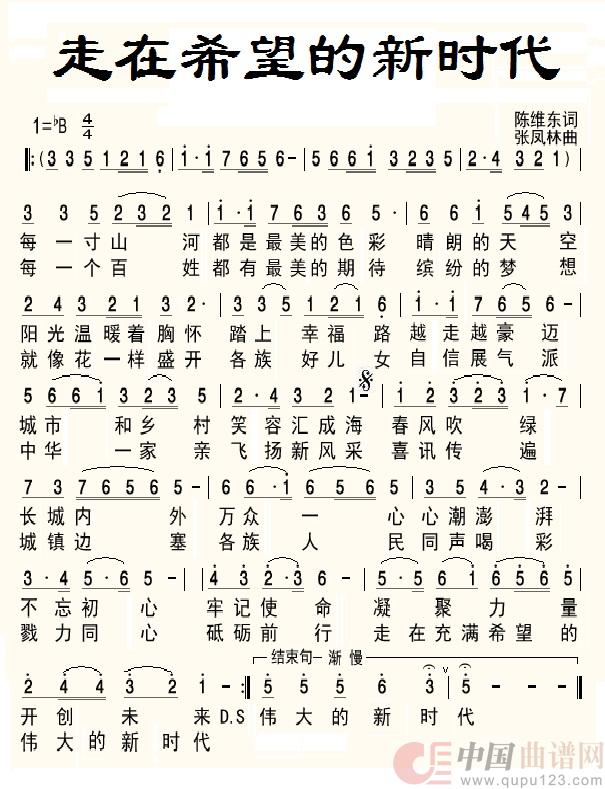 走在希望的新时代
1=♭B 4/4
陈维东词
张凤林曲
‖:(3 3 5 1 2 1 6 | 1·1 7 6 5 6– | 5 6 6 1 3 2 3 5 | 2·4 3 2 1 ) |
3 3 5 2 3 2 | 1·1 7 6 3 6 5· | 6 6 1 5 4 5 3
每一寸山河都是最美的色彩晴朗的天空
每一个百姓都有最美的期待缤纷的梦想
2 4 3 2 1 3 2· | 3 3 5 1 2 1 6 | 1·1 7 6 5 6–|
阳光温暖着胸怀踏上幸福路越走越豪迈
就像花一样盛开各族好儿女自信展气派
5 6 6 1 3 2 3 5 | 2·4 3 2 1– | 1 2 3 2 3 1·7 |
城市和乡村笑容汇成海春风吹绿
中华一家亲飞扬新风采喜讯传遍
7 3 7 6 5 6 5– | 6 6·1 6 5 6 5 | 3 5·3 2– |
长城内外万众一心心潮澎湃
城镇边塞各族人民同声喝彩
3·4 5·6 5– | 4·3 2·3 6– | 2·4 5·6 5 |
不忘初心牢记使命凝聚力量
戮力同心砥砺前行走在充满希望的
结束句– 渐慢
2 4 4 3 2 1– :‖ 5 5 5 6 3 ∨ | 5 – – – ‖
开创未来D.S伟大的新时代
伟大的新时代
中国曲谱网
www.qupu123.com